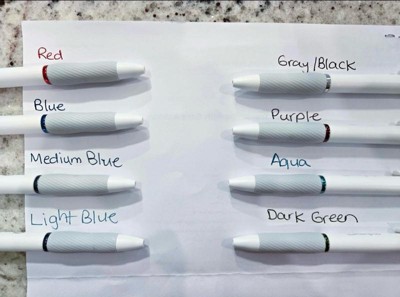 Red
Blue
Medium Blue
Light Blue
Gray/Black
Purple
Aqua
Dark Green